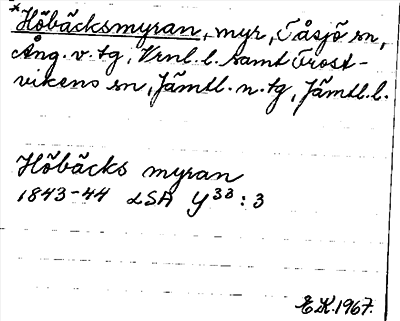 *Höbäcksmyran, myr, Tåsjö sn,
Ång. v. tg, Vrnl. l. samt Frost-
vikens sn, Jämtl. n. tg, Jämtl. l.
Höbäcks myran
1843-44 LSA Y33:3
E.K. 1967.